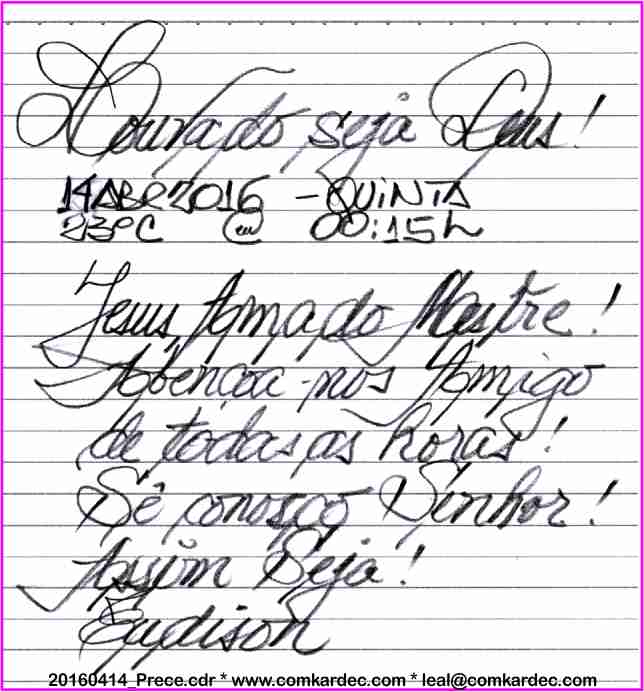 Louvado seja Deus!
14ABR2016 - QUINTA
23ºC @ 00:15h
Jesus, Amado Mestre!
Abençoa-nos Amigo
de todas as horas!
Sê conosco Senhor!
Assim Seja!
Eydison
20160414_Prece.cdr * www.comkardec.com * leal@comkardec.com